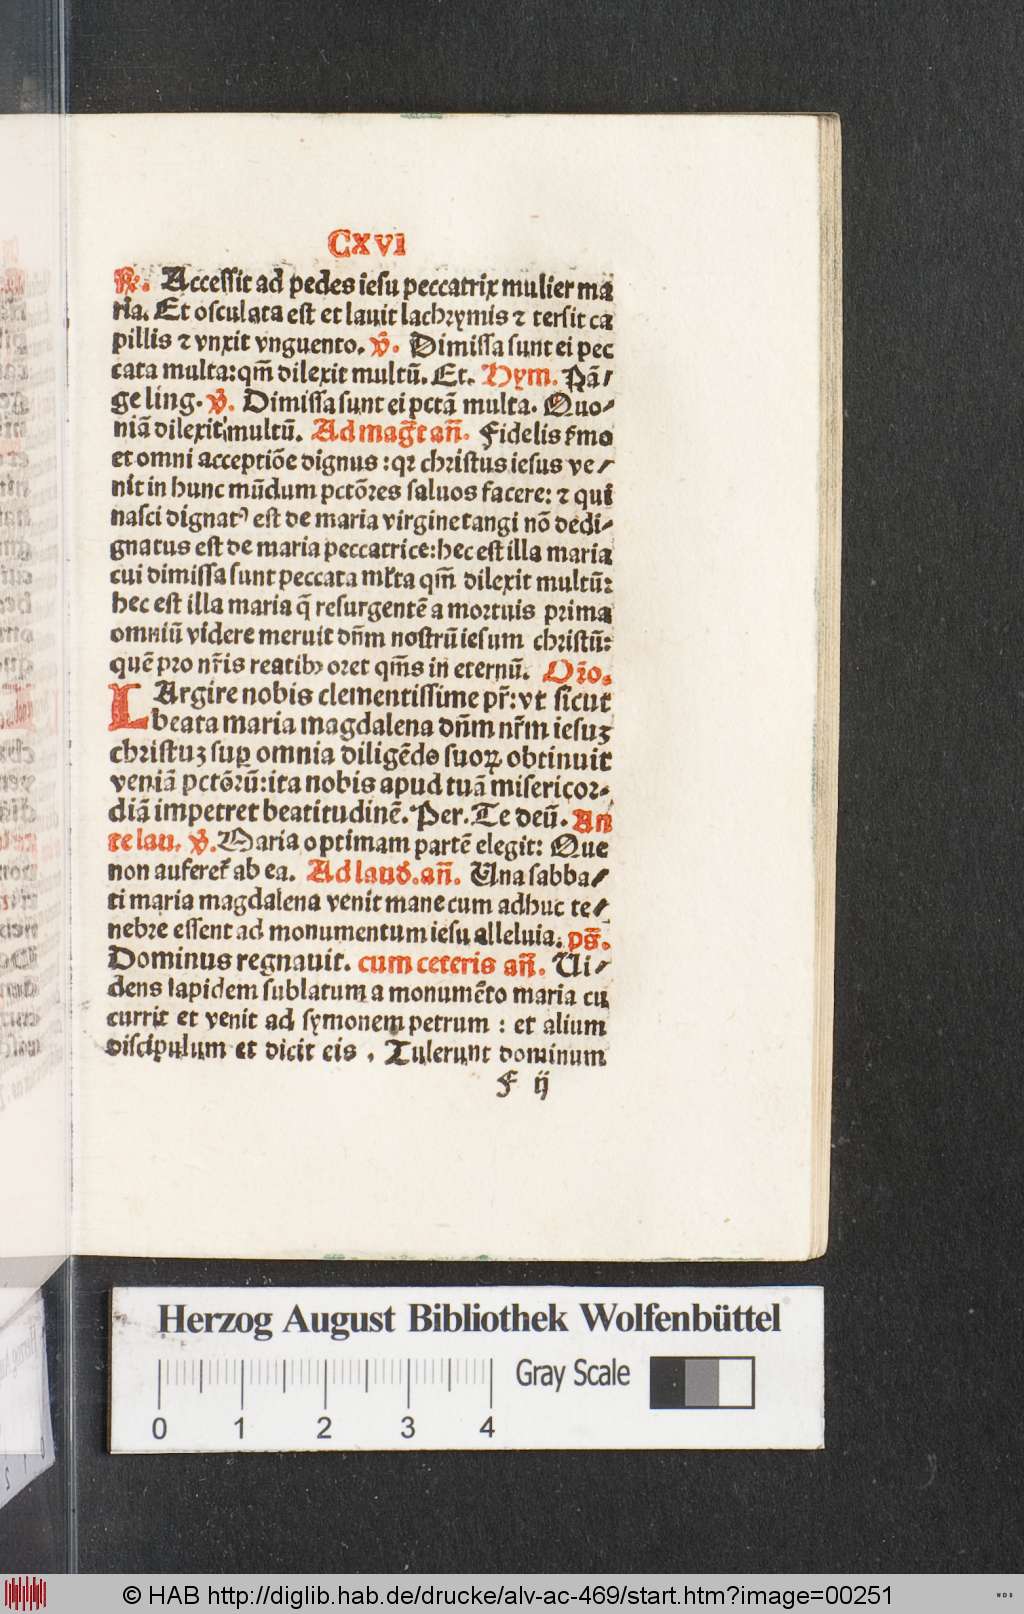 CXVI
℟. Accessit ad pedes iesu peccatrix mulier ma
ria. Et osculata est et lauit lachrymis ⁊ tersit ca
pillis ⁊ vnxit vnguento. ℣. Dimissa sunt ei pec
cata multa: qm̄ dilexit multū. Et. Hym. Pā⸗
ge ling. ℣. Dimissa sunt ei pctā multa. Quo⸗
niā dilexit multū. Ad mag̃t an̄. Fidelis s̉mo
et omni acceptiōe dignus: qꝛ christus iesus ve⸗
nit in hunc mūdum pctōres saluos facere: ⁊ qui
nasci dignatꝰ est de maria virgine tangi nō dedi⸗
gnatus est de maria peccatrice: hec est illa maria
cui dimissa sunt peccata mꝉta qm̄ dilexit multū:
hec est illa maria q̄ resurgentē a mortuis prima
omniū videre meruit dn̄m nostrū iesum christū:
quē pro nr̄is reatibꝫ oret qm̄s in eternū. Orō.
LArgire nobis clementissime pr̄: vt sicut
beata maria magdalena dn̄m nr̄m iesuꝫ
christuꝫ suꝑ omnia diligēdo suoꝝ obtinuit
veniā pctōrū: ita nobis apud tuā misericor⸗
diā impetret beatitudinē. Per. Te deū. An
te lau. ℣. Maria optimam partē elegit: Que
non auferet᷑ ab ea. Ad laud. an̄. Una sabba⸗
ti maria magdalena venit mane cum adhuc te⸗
nebre essent ad monumentum iesu alleluia. ps̄.
Dominus regnauit. cum ceteris an̄. Ui⸗
dens lapidem sublatum a monumēto maria cu
currit et venit ad symonem petrum : et alium
discipulum et dicit eis . Tulerunt dominum
F ij
Herzog August Bibliothek Wolfenbüttel
Gray Scale
0 1 2 3 4
© HAB http://diglib.hab.de/drucke/alv-ac-469/start.htm?image=00251